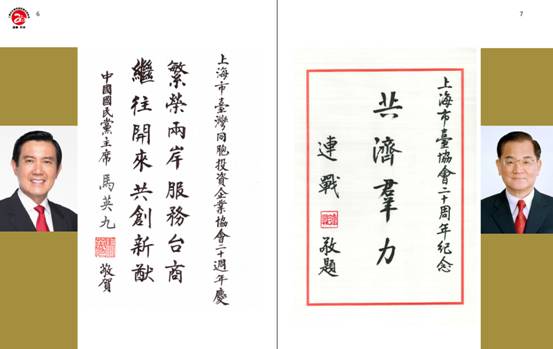 6
上海市臺灣同胞投資企業協會二十週年慶
繁榮兩岸服務台商
繼往開來共創新猷
中國國民黨主席 馬英九 敬賀
7
上海市臺協會二十周年紀念
共濟羣力
連戰 敬題